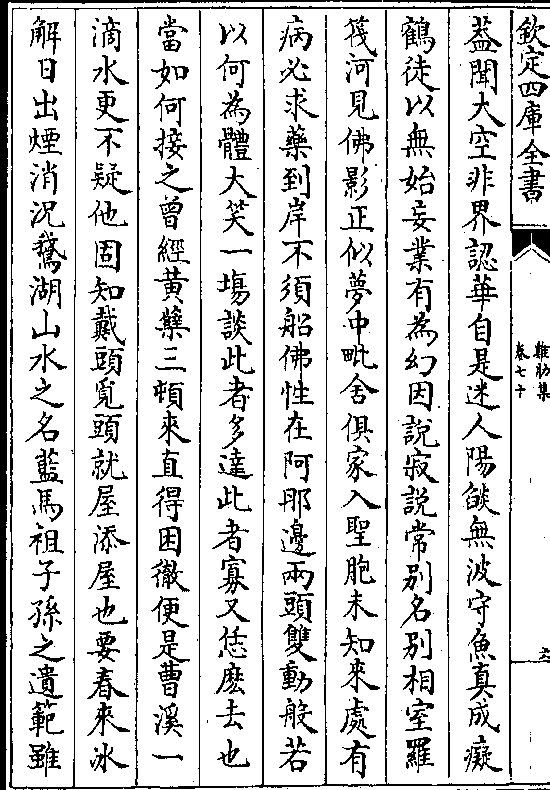 欽定四庫全書
雞肋集
卷七十
蓋聞大空非界認華自是迷人陽燄無波守魚真成癡
鶴徒以無始妄業有為幻因說寂說常別名別相室羅
筏河見佛影正似夢中毗舍俱家入聖胞未知來處有
病必求藥到岸不須船佛性在阿那邊兩頭雙動般若
以何為體大笑一場談此者多達此者寡又恁麽去也
當如何接之曾經黃蘗三頓來直得困徹便是曹溪一
滴水更不疑他固知戴頭覓頭就屋添屋也要春來冰
解日出煙消況鵞湖山水之名藍馬祖子孫之遺範雖